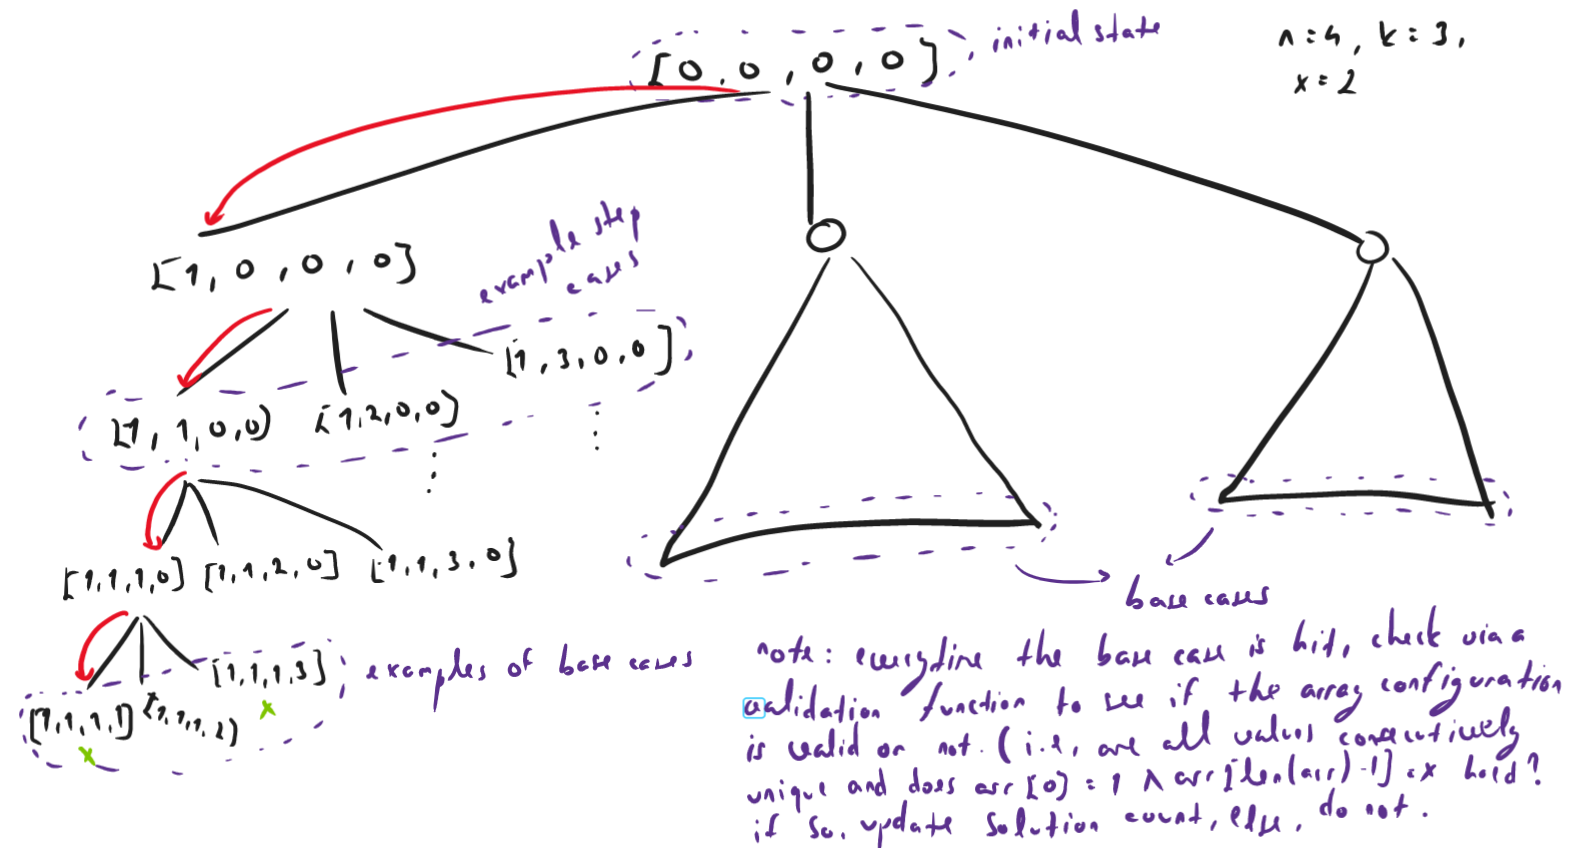 [0, 0, 0, 0]
initial state
n = 4, k = 3,
x = 2
example step
cases
[1, 0, 0, 0]
[1, 3, 0, 0]
[1, 1, 0, 0)
[1, 2, 0, 0)
[1, 1, 1, 0]
[1, 1, 2, 0]
[1, 1, 3, 0]
base cases
[1, 1, 1, 3]
examples of base cases
[1, 1, 1, 1]
[1, 1, 1, 2)
x
x
note: everytime the base case is hit, check via a
validation function to see if the array configuration
is valid or not. (i.e, are all values consecutively
unique and does arr[0] = 1 ∧ arr[len(arr)-1] = x hold?
if so, update solution count, else, do not.